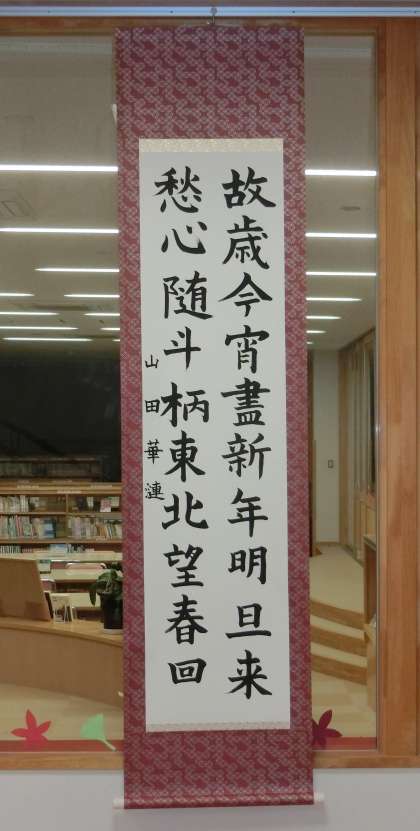 故歳今宵盡新年明旦来
愁心随斗柄東北望春回
山田華漣